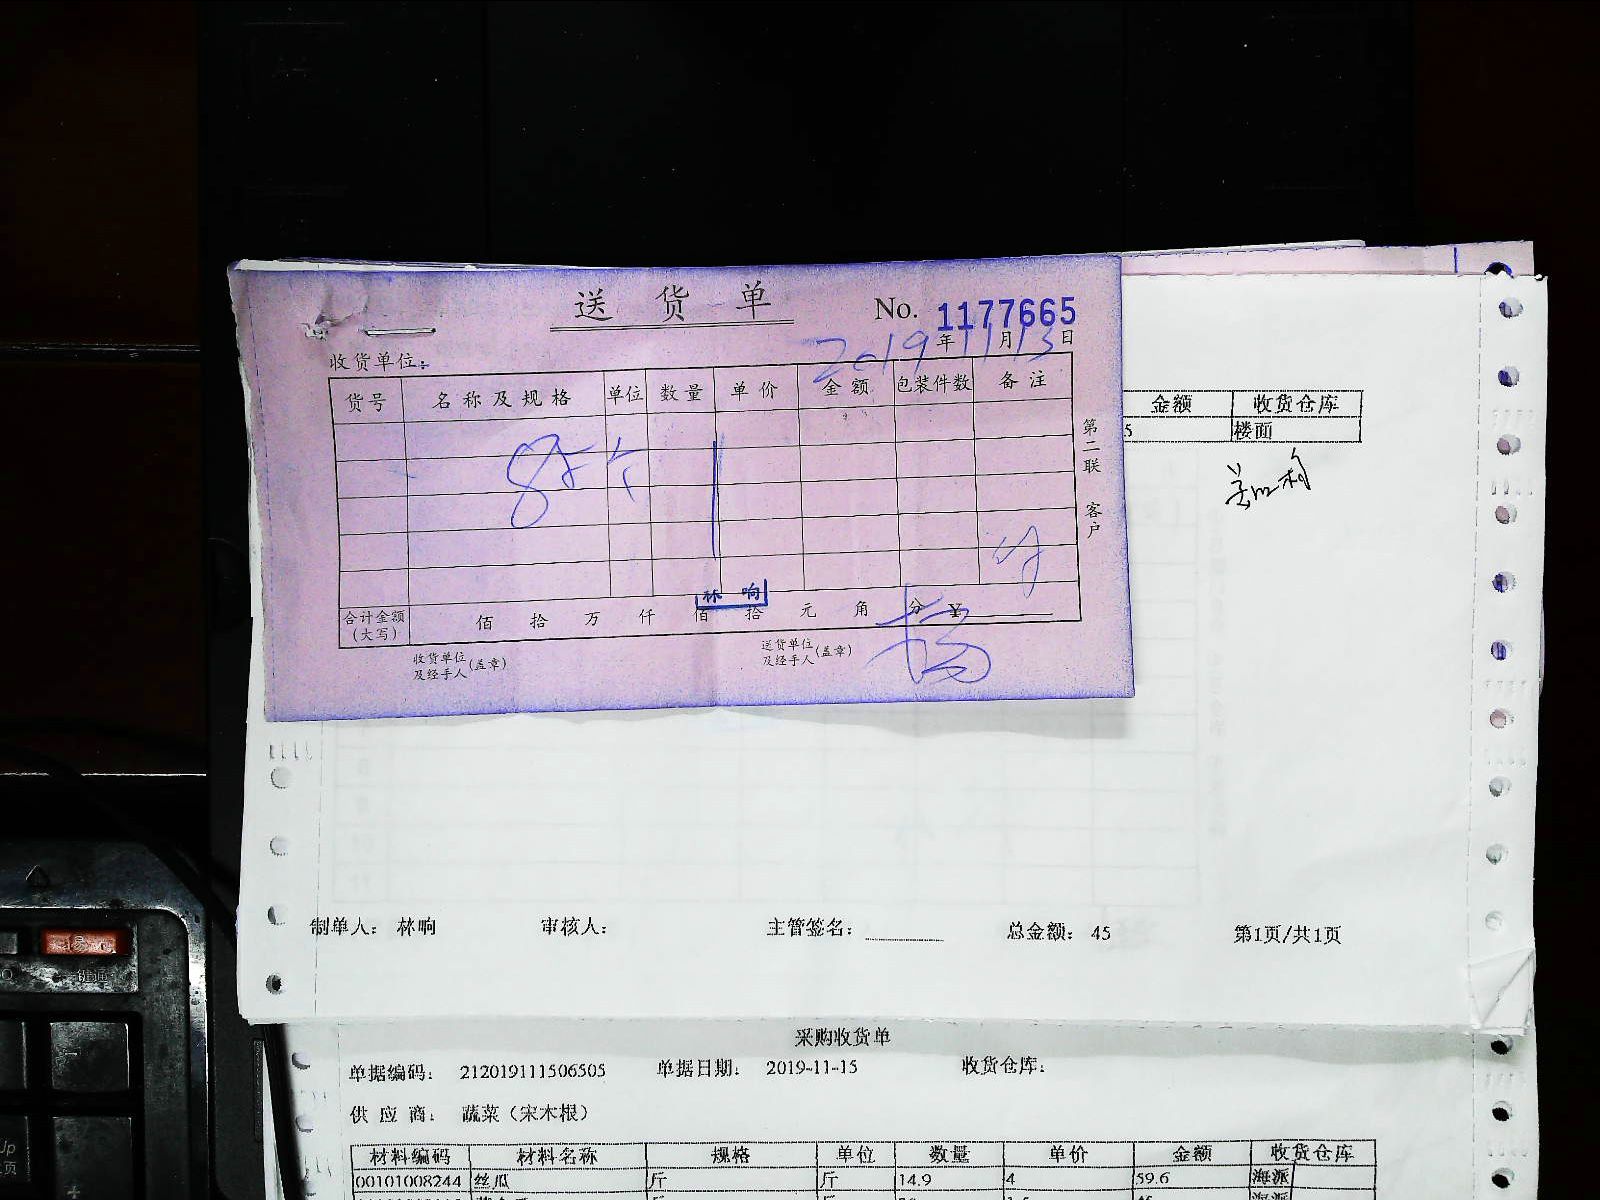 送货单 No. 1177665
2019年11月13日
收货单位:
货号 名称及规格 单位 数量 单价 金额 包装件数 备注
第二联 客户
林响
合计金额(大写) 佰 拾 万 仟 佰 拾 元 角 分 ¥
收货单位及经手人(盖章) 送货单位及经手人(盖章) 杨
金额 收货仓库
5 楼面
制单人: 林响 审核人: 主管签名: 总金额: 45 第1页/共1页
采购收货单
单据编码: 212019111506505 单据日期: 2019-11-15 收货仓库:
供应商: 蔬菜（宋木根）
材料编码 材料名称 规格 单位 数量 单价 金额 收货仓库
00101008244 丝瓜 斤 斤 14.9 4 59.6 海派